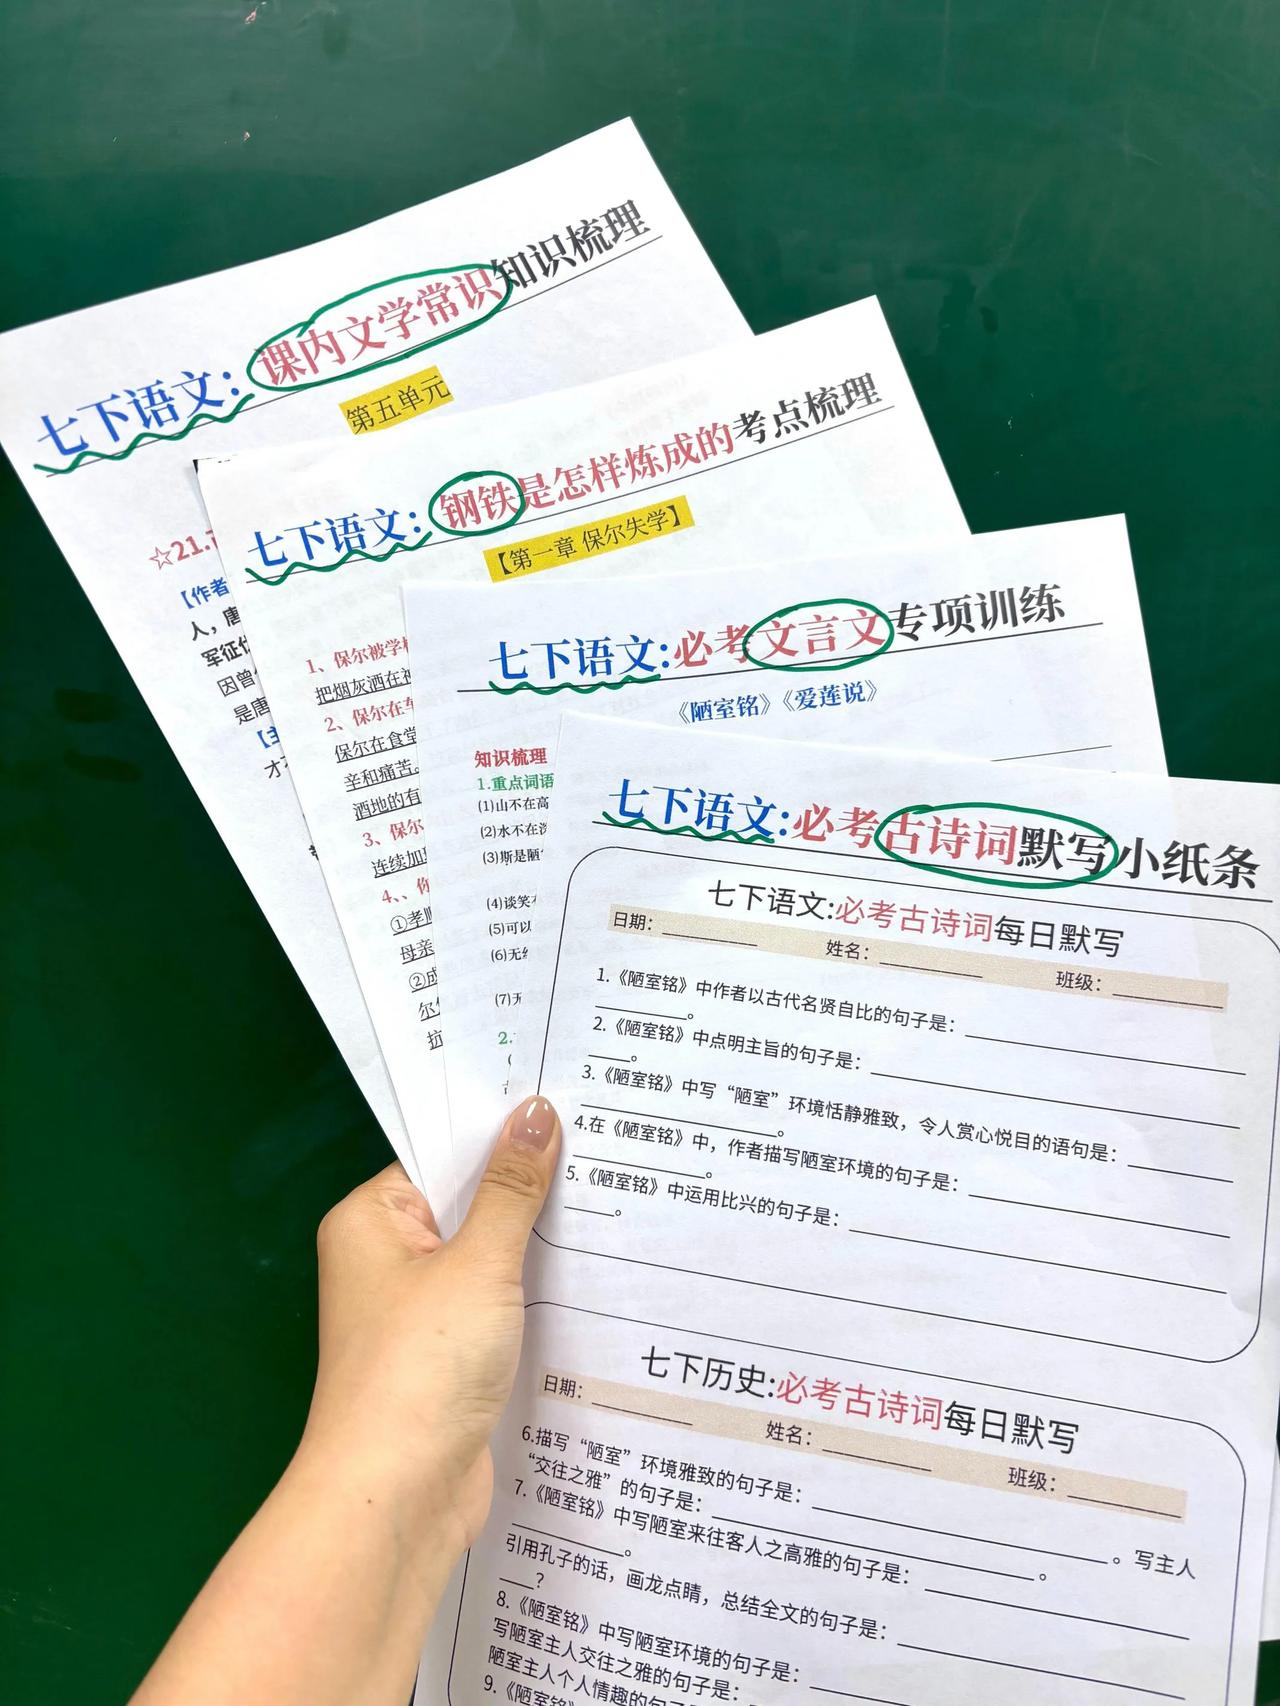 七下语文：课内文学常识知识梳理
第五单元
☆21.
【作者
人，唐
军征
因曾
是唐
才
七下语文：钢铁是怎样炼成的考点梳理
【第一章 保尔失学】
1、保尔被学校
把烟灰洒在神
2、保尔在车
保尔在食堂
辛和痛苦。
酒地的有
3、保尔
连续加
4、、你
①孝顺
母亲
②成
尔
抗
七下语文:必考文言文专项训练
《陋室铭》《爱莲说》
知识梳理
1.重点词语
(1)山不在高
(2)水不在深
(3)斯是陋
(4)谈笑
(5)可以
(6)无丝
(7)无
2.
七下语文:必考古诗词默写小纸条
七下语文:必考古诗词每日默写
日期：________ 姓名：________ 班级：________
1.《陋室铭》中作者以古代名贤自比的句子是：________
________。
2.《陋室铭》中点明主旨的句子是：________
____。
3.《陋室铭》中写“陋室”环境恬静雅致，令人赏心悦目的语句是：________
________。
4.在《陋室铭》中，作者描写陋室环境的句子是：________
________。
5.《陋室铭》中运用比兴的句子是：________
____。
七下历史:必考古诗词每日默写
日期：________ 姓名：________ 班级：________
6.描写“陋室”环境雅致的句子是：________。写主人
“交往之雅”的句子是：________。
7.《陋室铭》中写陋室来往客人之高雅的句子是：________
________。
引用孔子的话，画龙点睛，总结全文的句子是：________
___?
8.《陋室铭》中写陋室环境的句子是：
写陋室主人交往之雅的句子是：
陋室主人个人情趣的句子
9.《陋室铭》